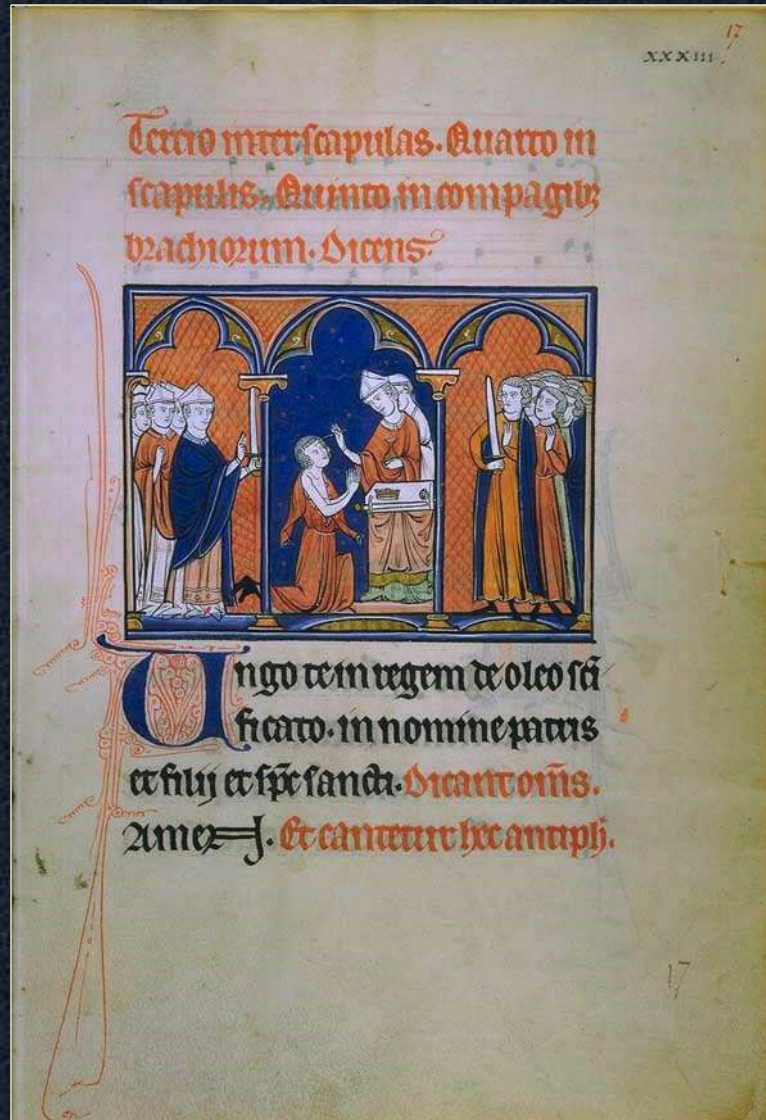 17
XXXIII.
Tercio inter scapulas. Quarto in
scapulis. Quinto in compagibꝫ
brachiorum. Dicens.
Ungo te in regem de oleo sc̄i
ficato. in nomine patris
et filij et sp̄c sancti. Dicant om̄s.
Amen. Et cantetur hec antiph̄.
17